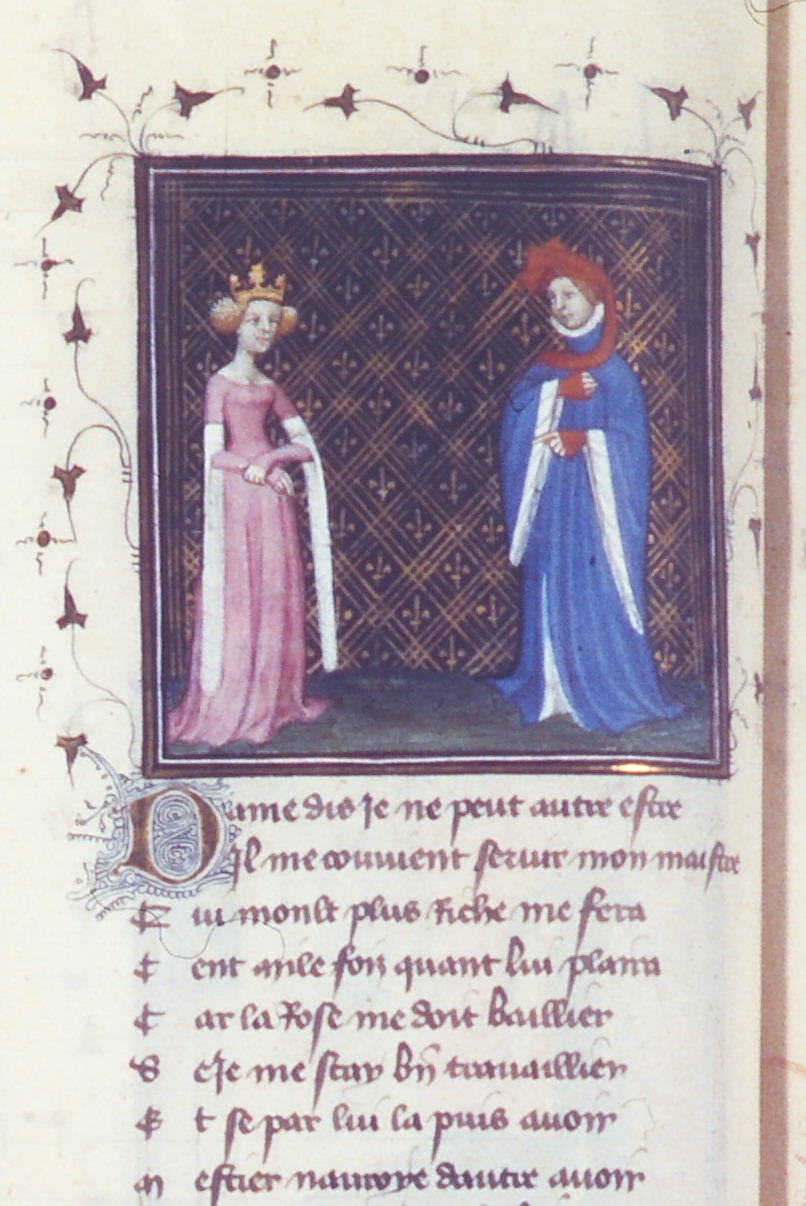 Dame dis Je ne peut autre estre
Il me couuient seruir mon maistre
Qui moult plus Riche me fera
Cent mile foiz quant lui plaira
Car la Rose me doit baillier
Se Je me scay bn̄ trauaillier
Et se par lui la puis auoir
Mestier nauroye dautre auoir